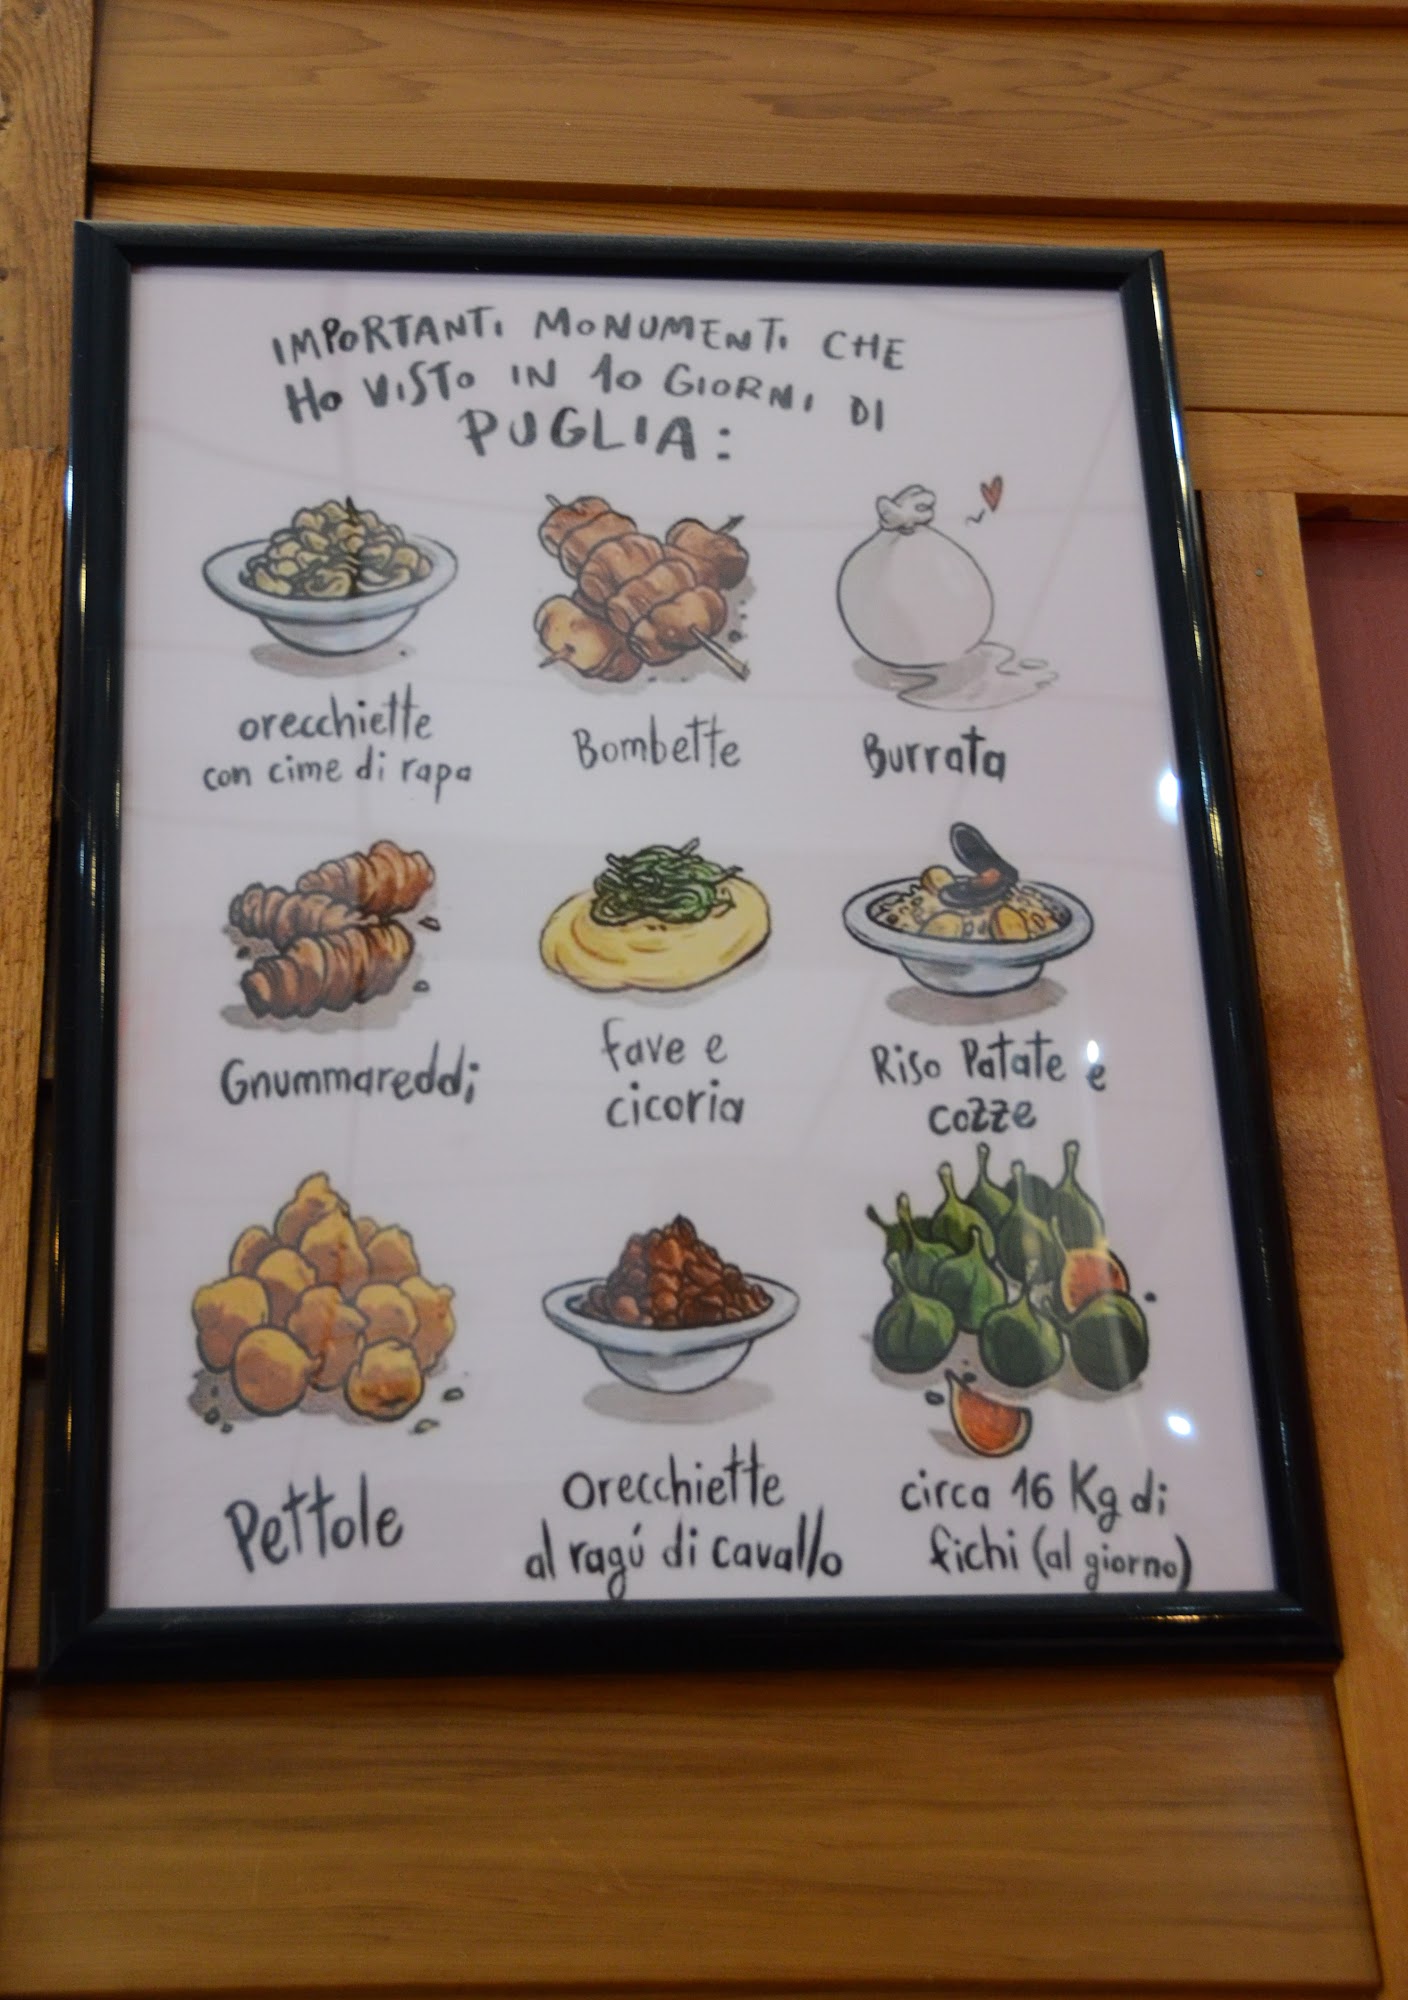 IMPORTANTI MONUMENTI CHE
HO VISTO IN 10 GIORNI DI
PUGLIA:
orecchiette
con cime di rapa
Bombette
Burrata
Gnummareddi
fave e
cicoria
Riso Patate e
cozze
Pettole
Orecchiette
al ragú di cavallo
circa 16 Kg di
fichi (al giorno)